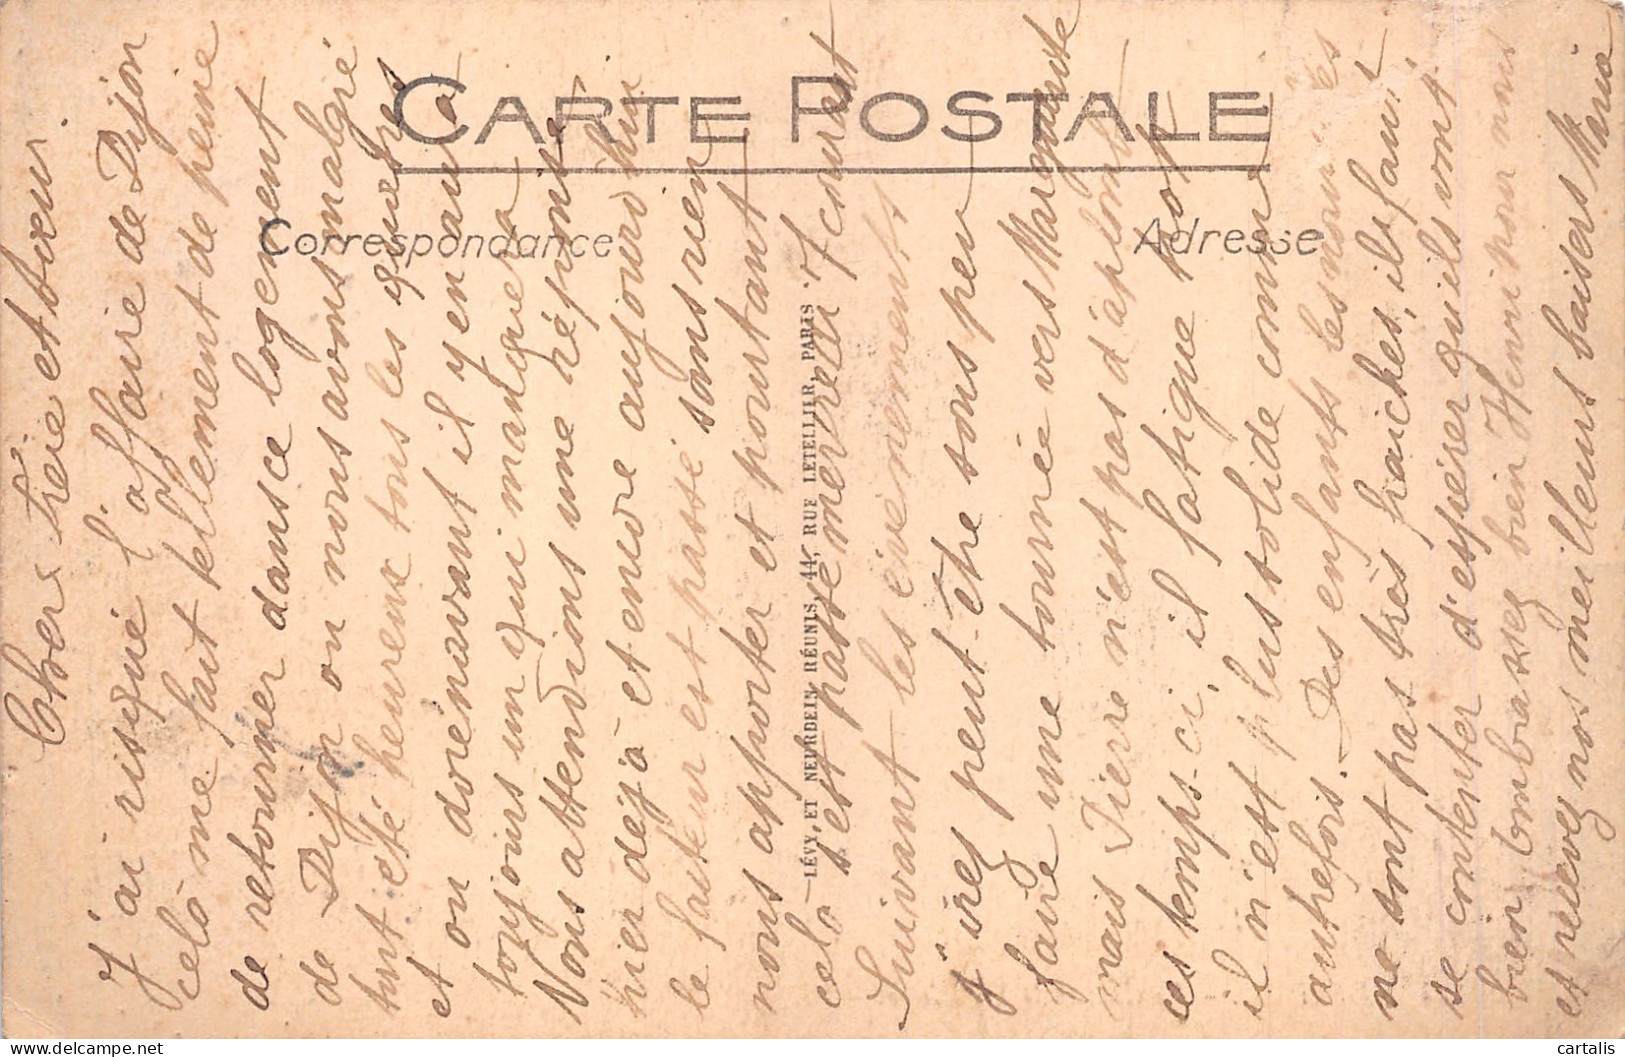 CARTE POSTALE
Correspondance
Adresse
LÉVY, ET NEURDEIN RÉUNIS, 44, RUE LETELLIER, PARIS
Cher Frère et Sœur.
J'ai risqué l'affaire de Dijon
celà me fait tellement de peine
de retourner dans ce logement
de Dijon ou nous avons malgré
tout été heureux tous les quatres
et ou dorénavant il y en aura
toujours un qui manquera
Nous attendions une réponse
hier déjà et encore aujourd'hui
le facteur est passé sans rien
nous apporter et pourtant
celà s'est passé mercredi 7 courant
Suivant les évènements
j'irez peut-être sous peu
faire une tournée vers Marguerite
mais Pierre n'est pas d'aplomb
ces temps-ci, il fatigue trop
il n'est plus solide comme
autrefois. Des enfants les nouvelles
ne sont pas très fraiches, il faut
se contenter d'espérer qu'ils vont
bien Embrassez bien Henri pour nous
et recevez nos meilleurs baisers Maria
cartalis